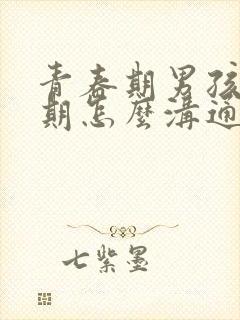 青春期男孩
期怎麼溝通
七紫墨